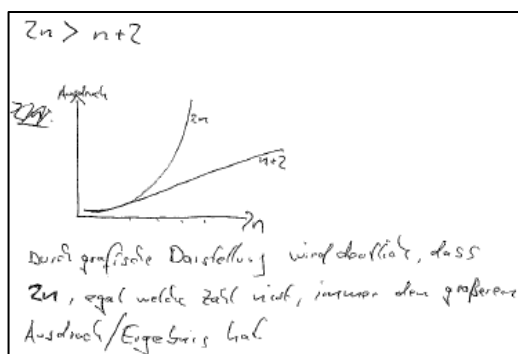 2n > n+2
Ausdruck
2n
n+2
n
Durch grafische Darstellung wird deutlich, dass
2n, egal welche Zahl n ist, immer den größeren
Ausdruck/Ergebnis hat.